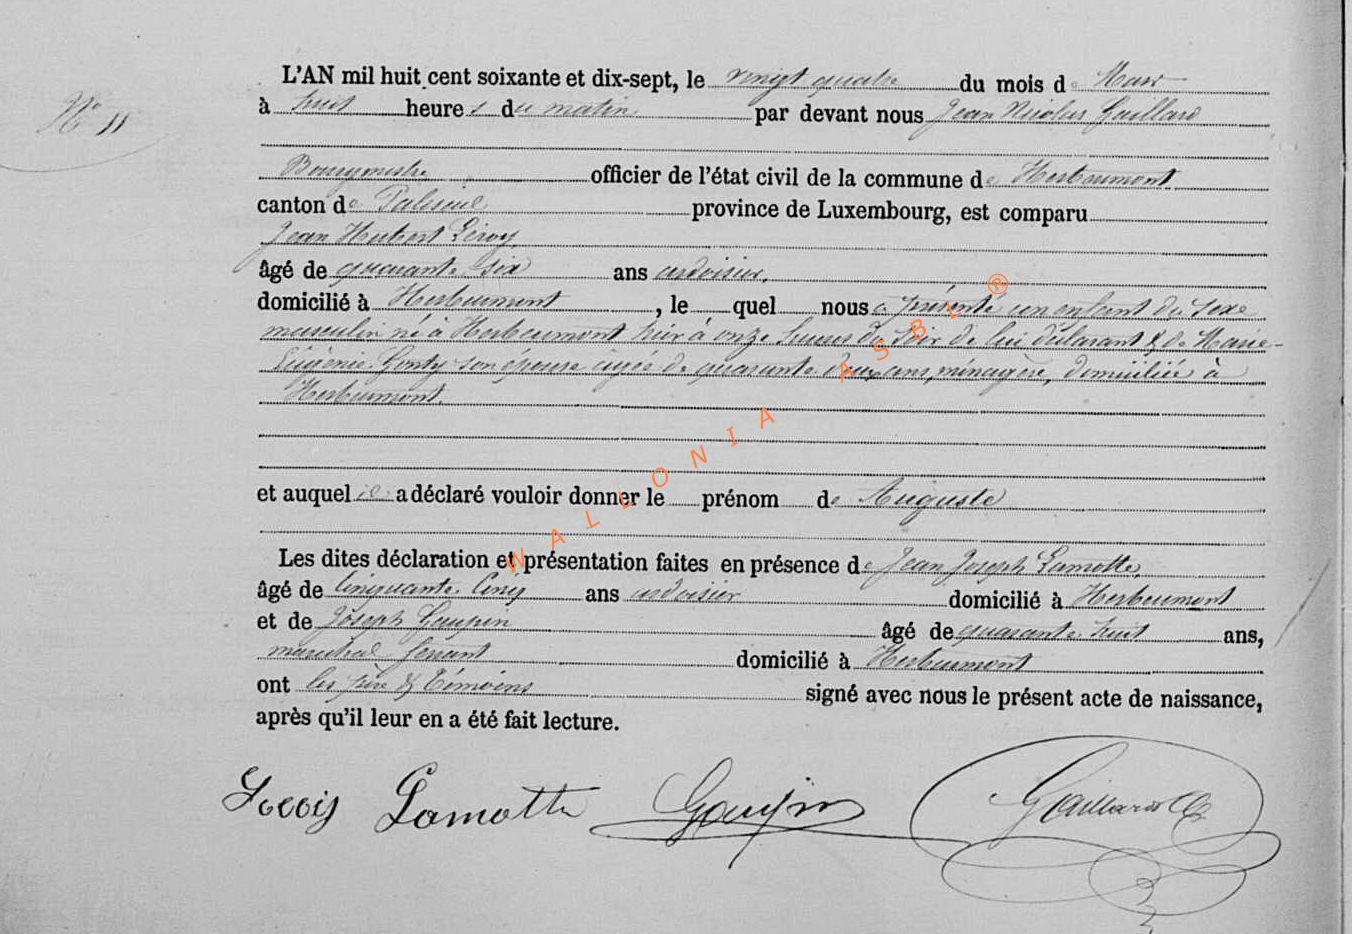 N° 11
L'AN mil huit cent soixante et dix-sept, le vingt quatre du mois de Mars
à huit heures du matin par devant nous Jean Nicolas Gaillard
Bourgmestre officier de l'état civil de la commune de Herbeumont
canton de Paliseul province de Luxembourg, est comparu
Jean Hubert Leroy,
âgé de quarante six ans ardoisier,
domicilié à Herbeumont, le quel nous a présenté un enfant du sexe
masculin né à Herbeumont hier à onze heures du soir de lui déclarant & de Marie-
Eugénie Gonty son épouse âgée de quarante deux ans, ménagère, domiciliée à
Herbeumont.
et auquel il a déclaré vouloir donner le prénom de Auguste
Les dites déclaration et présentation faites en présence de Jean Joseph Lamotte,
âgé de cinquante cinq ans ardoisier domicilié à Herbeumont
et de Joseph Gaupin âgé de quarante huit ans,
maréchal ferrant domicilié à Herbeumont
ont les père & témoins signé avec nous le présent acte de naissance,
après qu'il leur en a été fait lecture.
Lamotte Gaupin Gaillard
WALLONIA ASBL ®